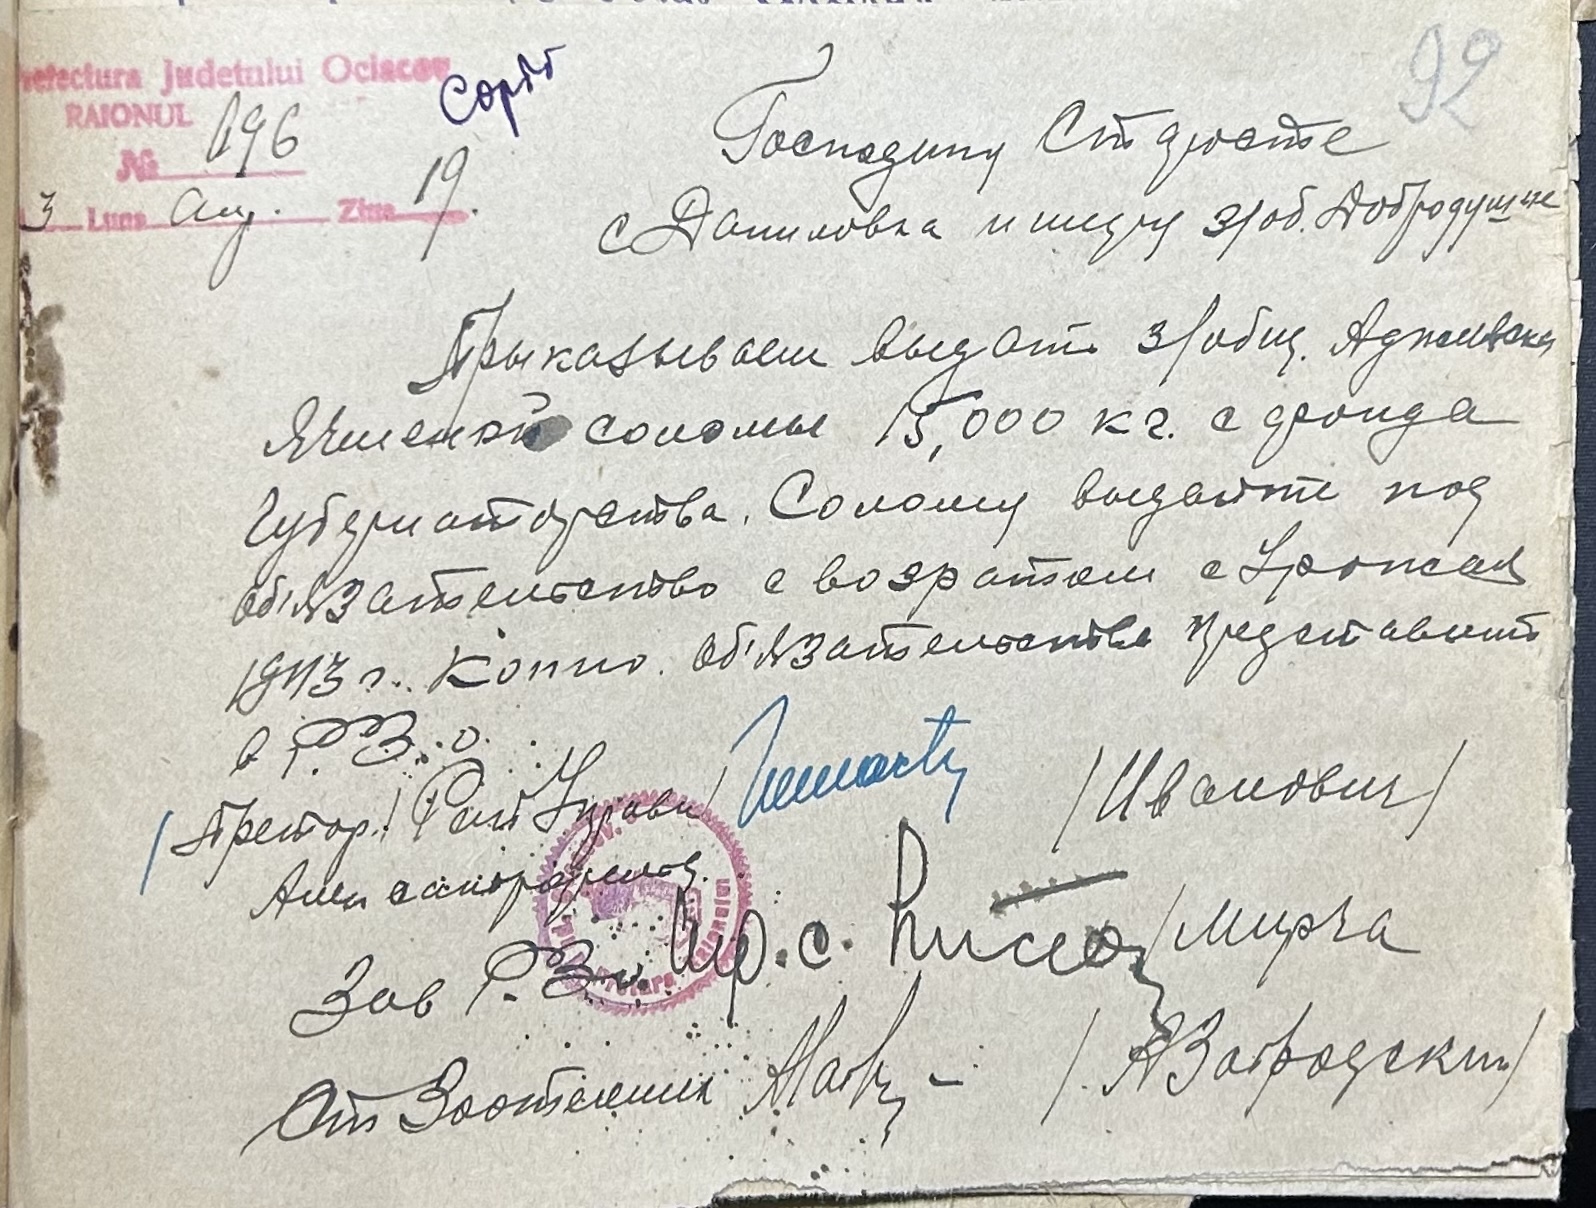 Prefectura Judetului Ociacov
RAIONUL
№ 696
3 Luna Aug. Ziua 19.
92
Господину Старосте
с Даниловка и шеру з/об. Добродушне
Приказываем выдать з/общ. Аджиевка
Ячменной соломы 15,000 кг. с фонда
Губернаторства. Солому выдайте под
об'язательство с возратом с Урожая
1943 г. Копию об'язательства представить
в Р.З.О.
/Претор/ Рай Управи /Иванович/
Зав Р.З.О. /Мирча
От Зоотехник /А Завродский/